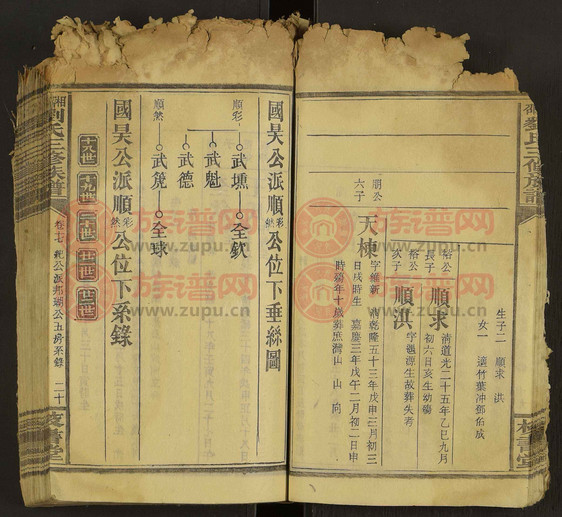 劉氏三修族譜
生子二 順求 洪
女一 適竹葉沖鄧佑成
裕公長子 順求 清道光二十五年乙巳九月初六日亥生幼殤
裕公次子 順洪 字 源生故葬失考
朋公六子 天棟 字維新 清乾隆五十三年戊申三月初三日戌時生 嘉慶三年戊午二月初二日申時殤年十歲葬庶灣山 山 向
國昊公派順彩然公位下垂絲圖
順彩 武壎 全欽
武魁
武德
順然 武鏡 全球
國昊公派順彩然公位下系錄
十八世 十九世 二十世 廿一世 廿二世
湘 劉氏三修族譜
卷十七 昆公派邦瑚公五房系錄 二十
族谱网
www.zupu.cn
族谱网
www.zupu.cn
族谱网
www.zupu.cn
族谱网
www.zupu.cn